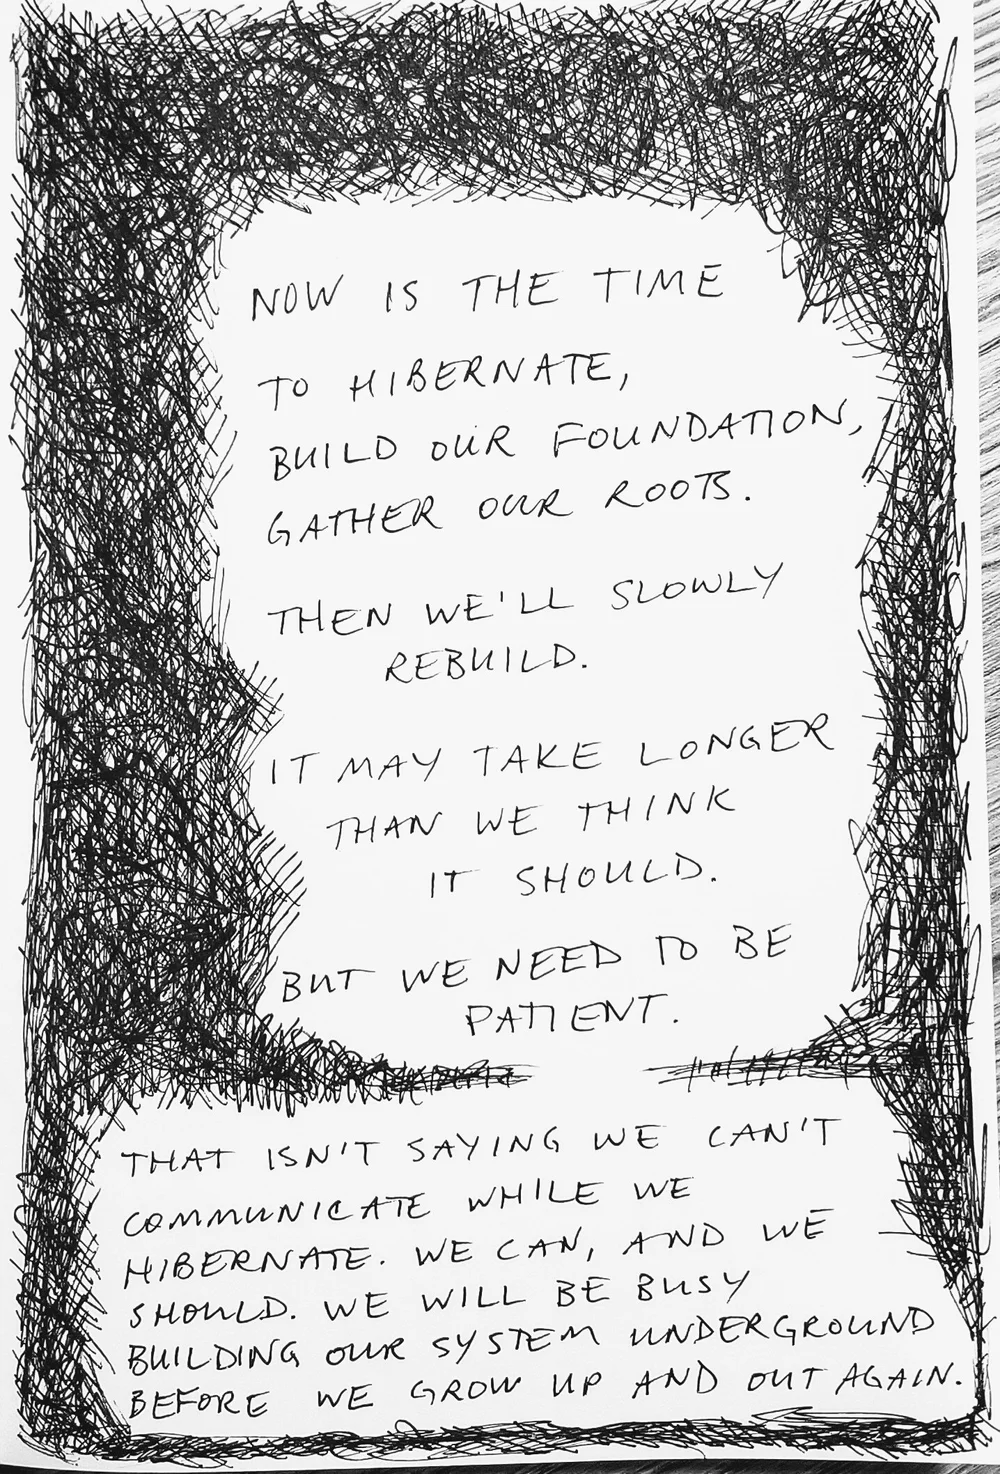 NOW IS THE TIME
TO HIBERNATE,
BUILD OUR FOUNDATION,
GATHER OUR ROOTS.
THEN WE'LL SLOWLY
REBUILD.
IT MAY TAKE LONGER
THAN WE THINK
IT SHOULD.
BUT WE NEED TO BE
PATIENT.
THAT ISN'T SAYING WE CAN'T
COMMUNICATE WHILE WE
HIBERNATE. WE CAN, AND WE
SHOULD. WE WILL BE BUSY
BUILDING OUR SYSTEM UNDERGROUND
BEFORE WE GROW UP AND OUT AGAIN.